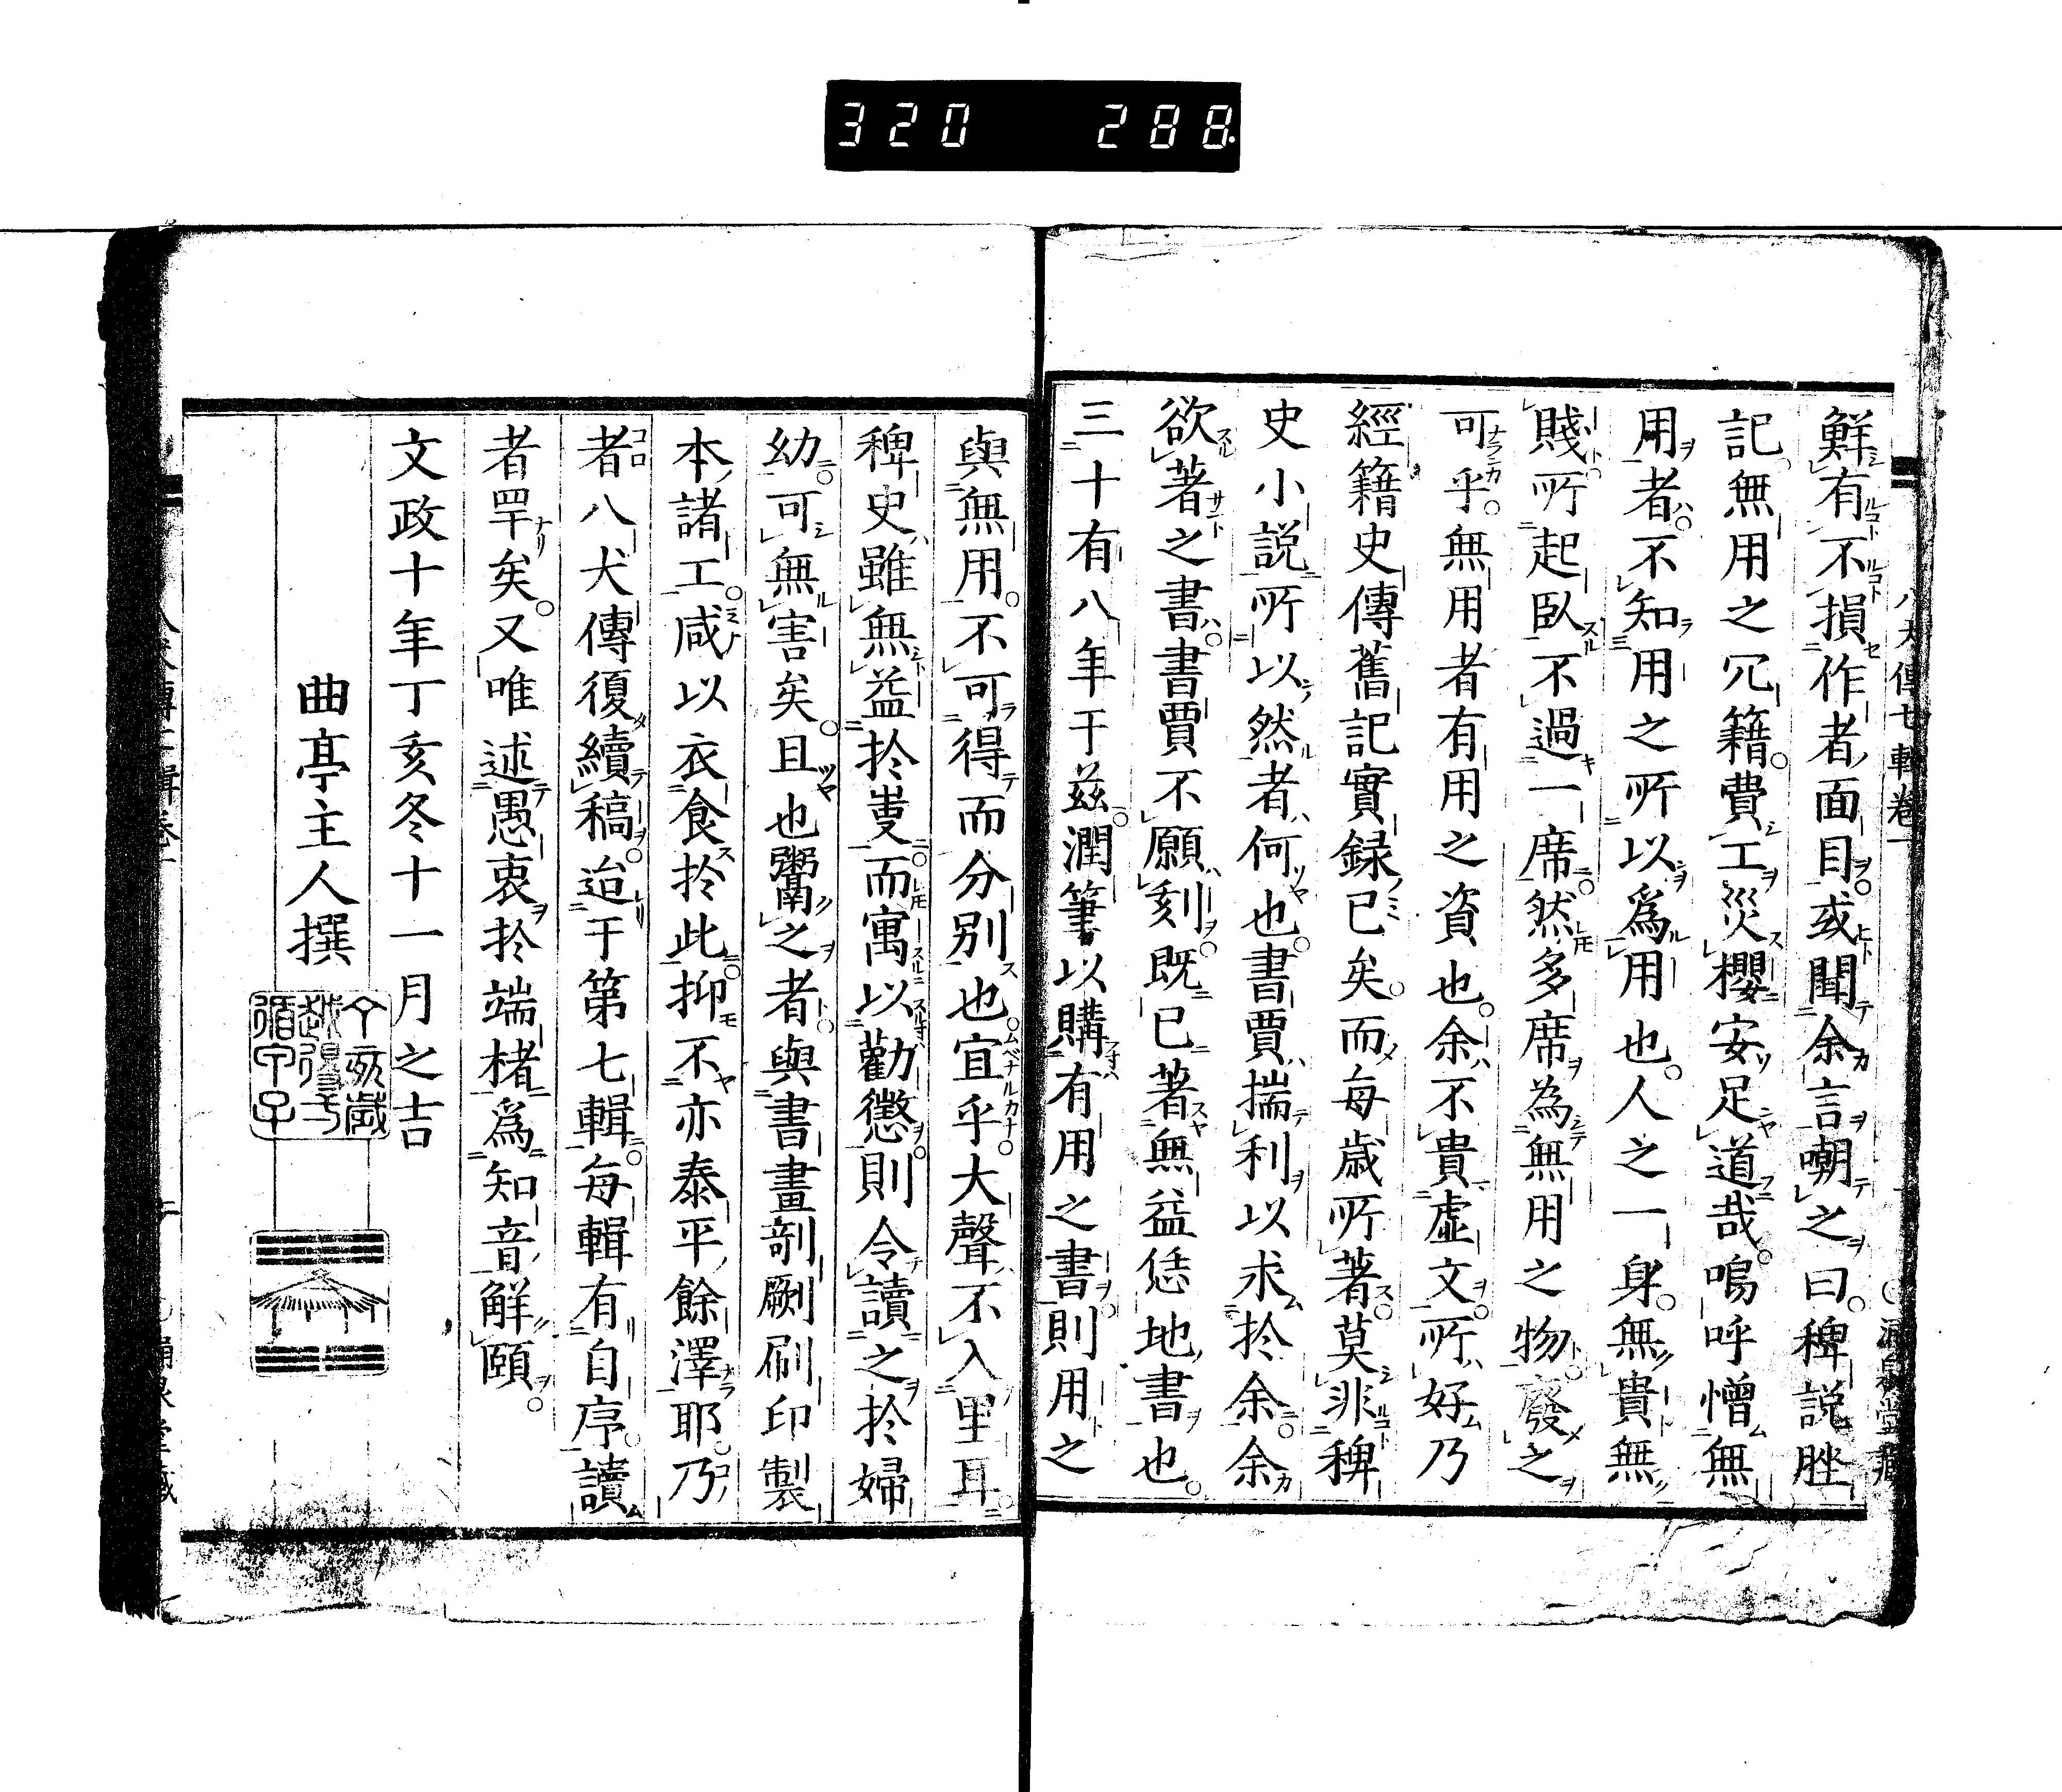 320 288
八犬傳七輯卷一
鮮有不損作者面目或聞余言嘲之曰稗説脞
記無用之冗籍費工災櫻安足道哉嗚呼憎無
用者不知用之所以爲用也人之一身無貴無
賤所起臥不過一席然多席為無用之物廢之
可乎無用者有用之資也余不貴虛文所好乃
經籍史傳舊記實録已矣而每歳所著莫非稗
史小説所以然者何也書賈揣利以求於余余
欲著之書書賈不願刻既已著無益恁地書也
三十有八年于茲潤筆以購有用之書則用之
與無用不可得而分別也宜乎大聲不入里耳
稗史雖無益於叓而寓以勸懲則令讀之於婦
幼可無害矣且也鬻之者與書畫剞劂刷印製
本諸工咸以衣食於此抑不亦泰平餘澤耶乃
者八犬傳復續稿迨于第七輯每輯有自序讀
者罕矣又唯述愚衷於端楮爲知音解頤
文政十年丁亥冬十一月之吉
曲亭主人撰